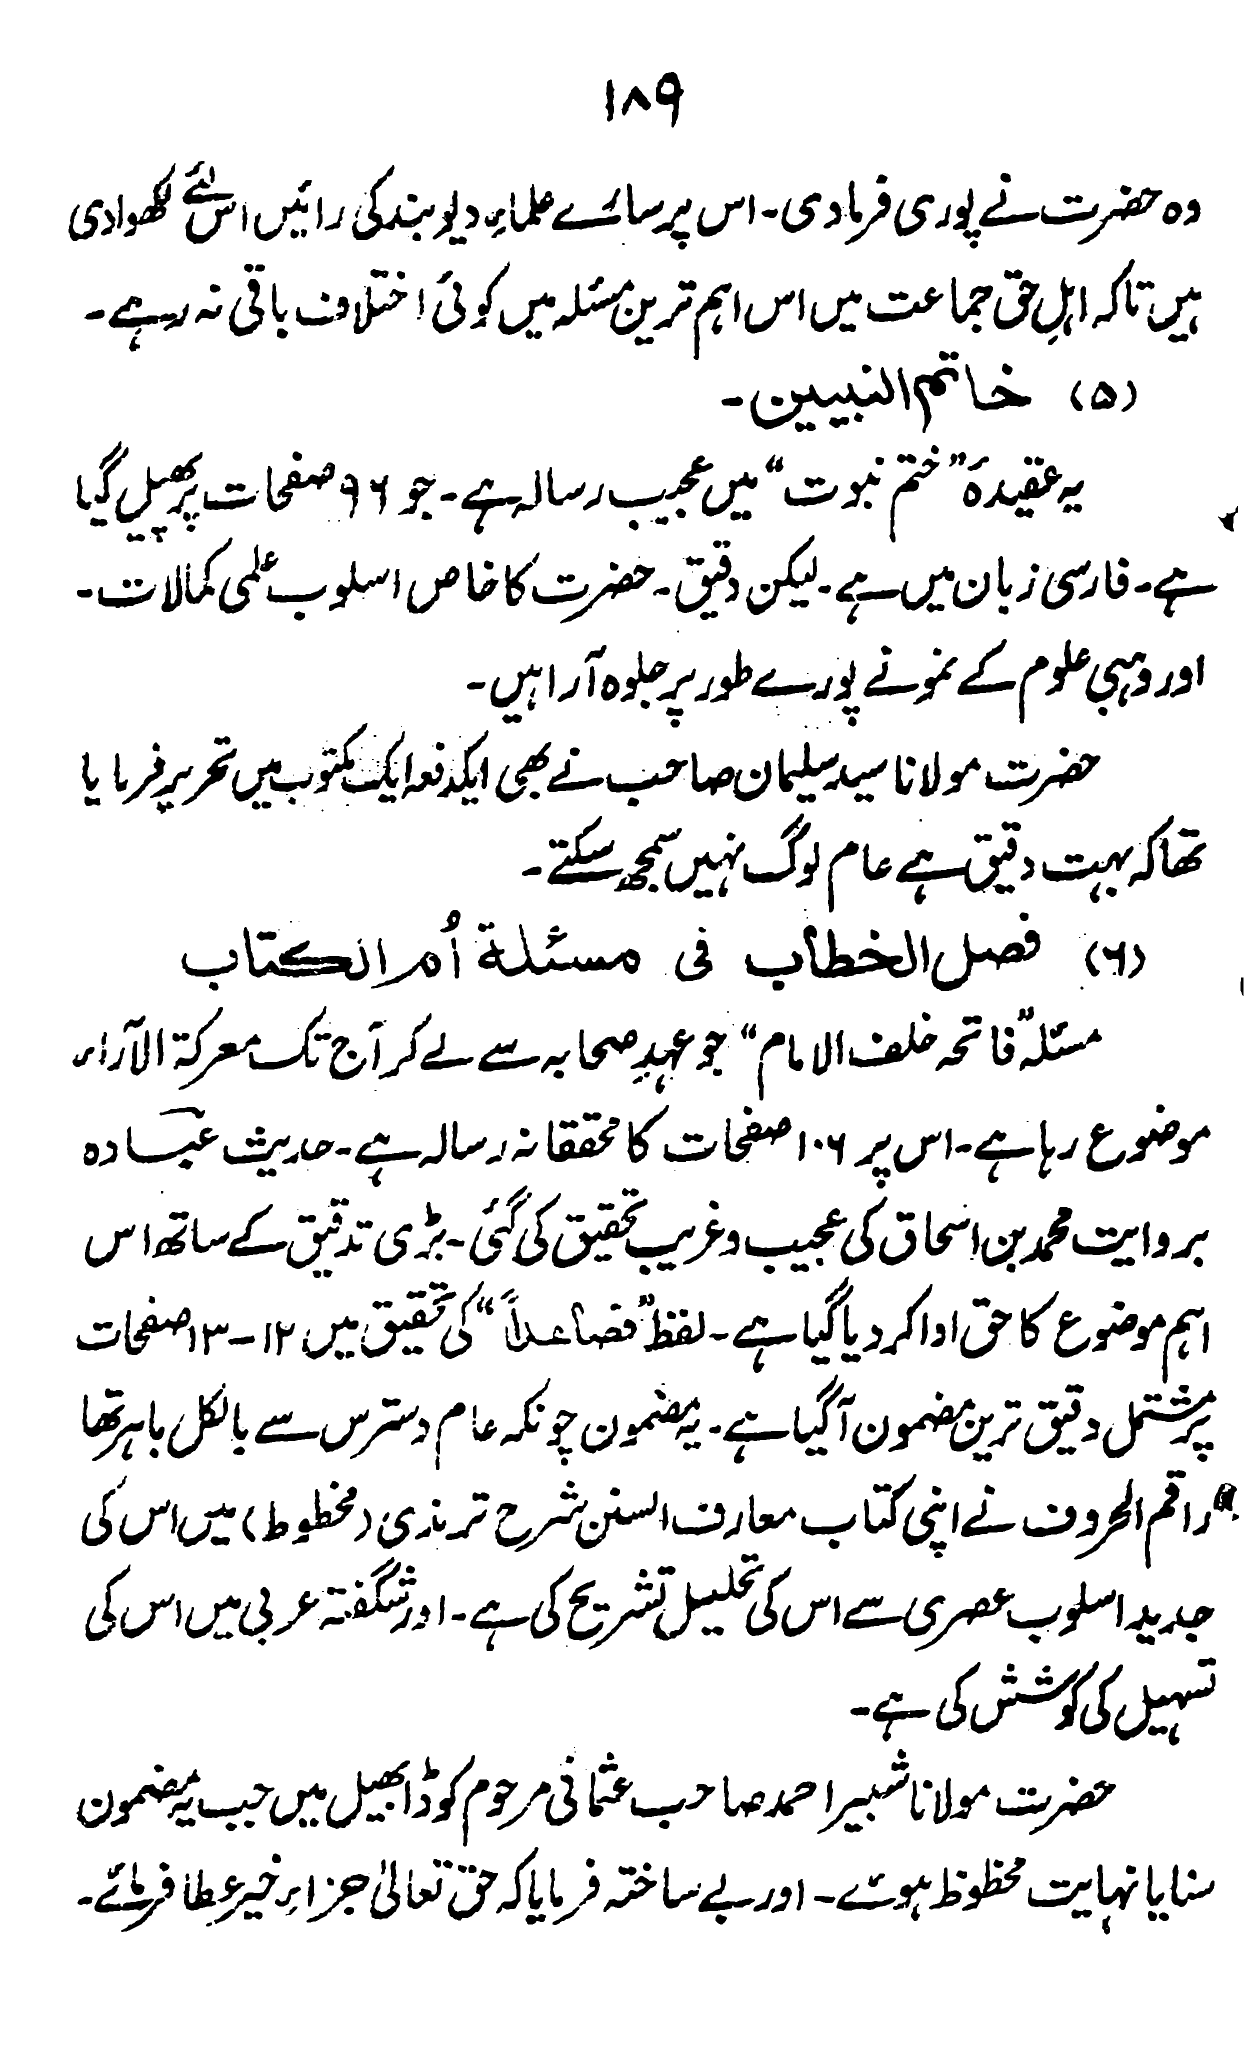 ۱۸۹
وہ حضرت نے پوری فرمادی۔ اس پر سارے علماءِ دیوبند کی رائیں اس لئے لکھوادی
ہیں تاکہ اہلِ حق جماعت میں اس اہم ترین مسئلہ میں کوئی اختلاف باقی نہ رہے۔
(۵) خاتم النبیین۔
یہ عقیدۂ ”ختم نبوت“ میں عجیب رسالہ ہے۔ جو ۹۶ صفحات پر پھیل گیا
ہے۔ فارسی زبان میں ہے۔ لیکن دقیق۔ حضرت کا خاص اسلوب علمی کمالات۔
اور وہبی علوم کے نمونے پورے طور پر جلوہ آرا ہیں۔
حضرت مولانا سید سلیمان صاحب نے بھی ایکدفعہ ایک مکتوب میں تحریر فرمایا
تھا کہ بہت دقیق ہے عام لوگ نہیں سمجھ سکتے۔
(۶) فصل الخطاب فی مسئلة اُم الکتاب
مسئلہ ”فاتحہ خلف الامام“ جو عہدِ صحابہ سے لے کر آج تک معرکۃ الآراء
موضوع رہا ہے۔ اس پر ۱۰۶ صفحات کا محققانہ رسالہ ہے۔ حدیث عبادہ
بروایت محمد بن اسحاق کی عجیب و غریب تحقیق کی گئی۔ بڑی تدقیق کے ساتھ اس
اہم موضوع کا حق ادا کر دیا گیا ہے۔ لفظ ”فصاعداً“ کی تحقیق میں ۱۲-۱۳ صفحات
پر مشتمل دقیق ترین مضمون آگیا ہے۔ یہ مضمون چونکہ عام دسترس سے بالکل باہر تھا
راقم الحروف نے اپنی کتاب معارف السنن شرح ترمذی (مخطوط) میں اس کی
جدید اسلوب عصری سے اس کی تحلیل تشریح کی ہے۔ اور شگفتہ عربی میں اس کی
تسہیل کی کوشش کی ہے۔
حضرت مولانا شبیر احمد صاحب عثمانی مرحوم کو ڈابھیل میں جب یہ مضمون
سنایا نہایت محظوظ ہوئے۔ اور بے ساختہ فرمایا کہ حق تعالیٰ جزاءِ خیر عطا فرمائے۔